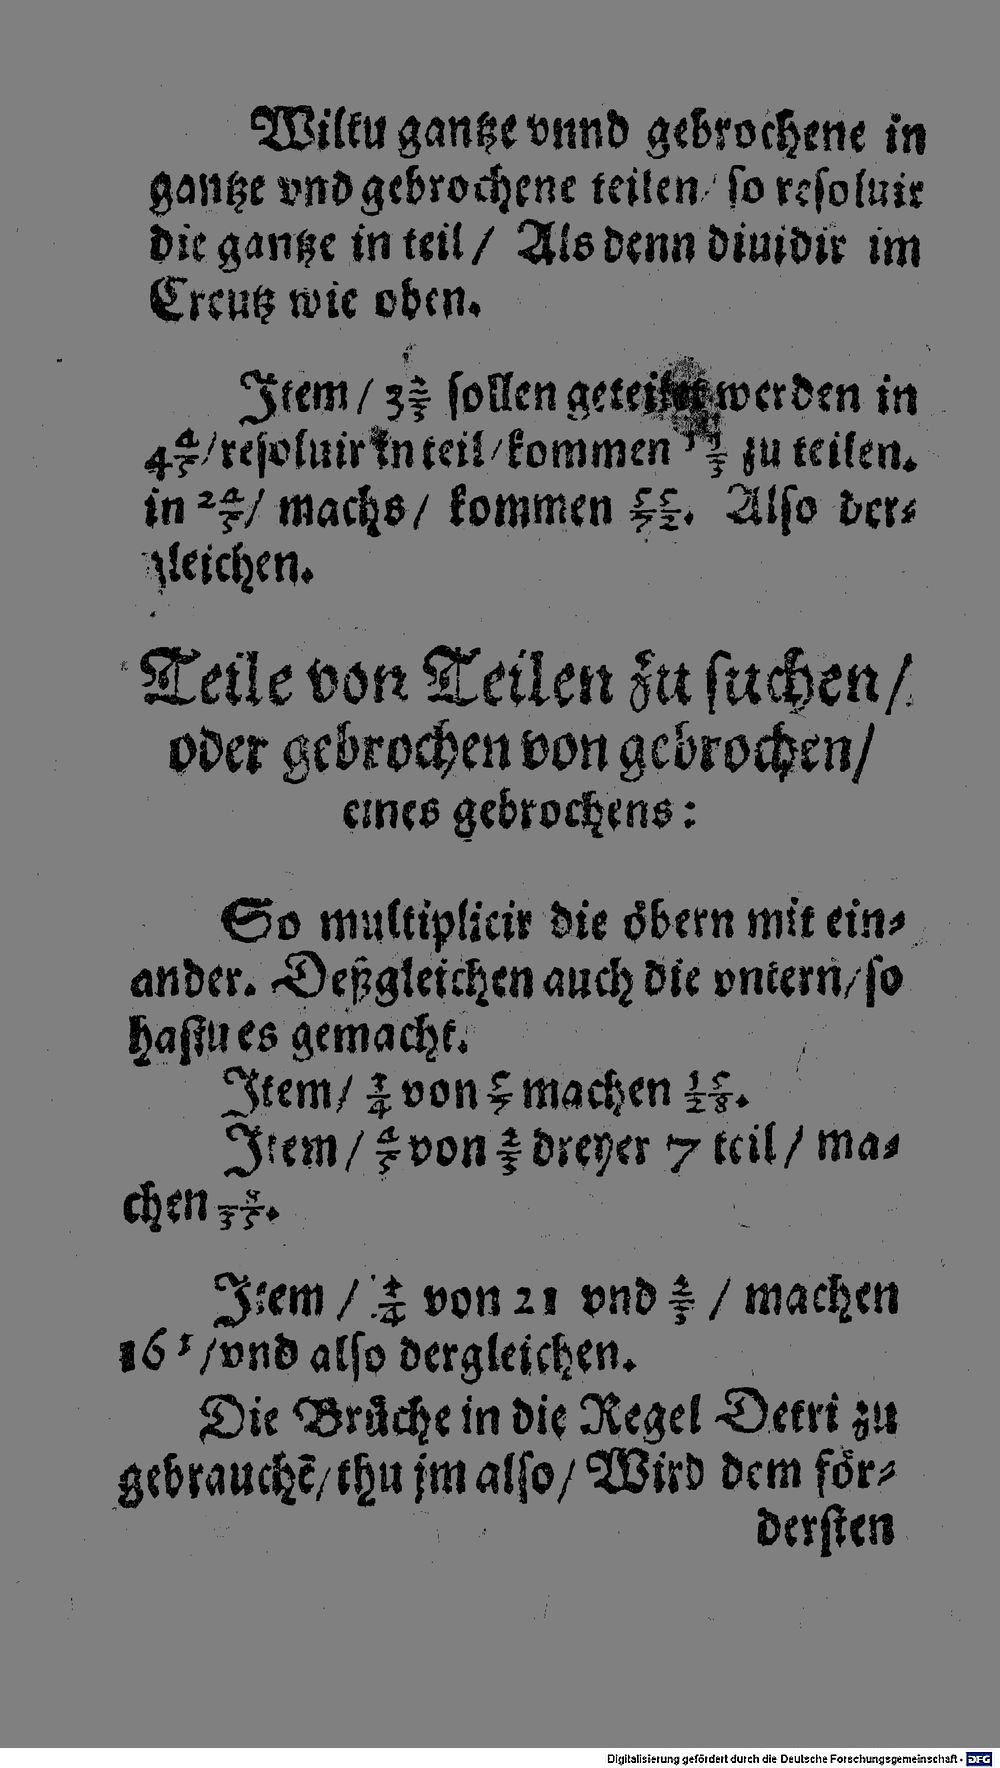 Wiltu gantze vnnd gebrochene in
gantze vnd gebrochene teilen/ so resoluir
die gantze in teil/ Als denn diuidir im
Creutz wie oben.
Item/ 3 2/3 sollen geteilet werden in
4 4/5/ resoluir in teil/ kommen 11/3 zu teilen.
in 24/5/ machs/ kommen 55/72. Also der⸗
gleichen.
Teile von Teilen zu suchen/
oder gebrochen von gebrochen/
eines gebrochens:
So multiplicir die öbern mit ein⸗
ander. Deßgleichen auch die vntern/ so
hastu es gemacht.
Item/ 3/4 von 5/7 machen 15/28.
Item/ 4/5 von 2/3 dreyer 7 teil/ ma⸗
chen 8/35.
Item / 3/4 von 21 vnd 2/3 / machen
16 / vnd also dergleichen.
Die Brüche in die Regel Detri zu
gebrauchē/ thu jm also/ Wird dem för⸗
dersten
Digitalisierung gefördert durch die Deutsche Forschungsgemeinschaft - DFG